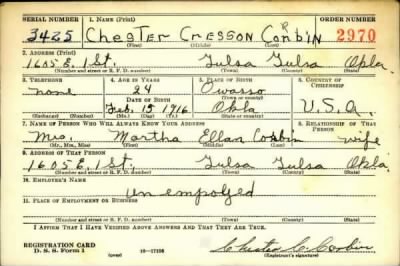 SERIAL NUMBER 1. NAME (Print) ORDER NUMBER
3425 Chester Cresson Corbin 2970
(First) (Middle) (Last)
2. ADDRESS (Print)
1605 E. 1 St. Tulsa Tulsa Okla.
(Number and street or R. F. D. number) (Town) (County) (State)
3. TELEPHONE 4. AGE IN YEARS 5. PLACE OF BIRTH 6. COUNTRY OF CITIZENSHIP
none 24 Owasso
DATE OF BIRTH (Town or county)
Feb. 15 1916 Okla U.S.A.
(Mo.) (Day) (Yr.) (State or country)
7. NAME OF PERSON WHO WILL ALWAYS KNOW YOUR ADDRESS 8. RELATIONSHIP OF THAT PERSON
Mrs. Martha Ellan Corbin wife
(Mr., Mrs., Miss) (First) (Middle) (Last)
9. ADDRESS OF THAT PERSON
1605 E. 1 St. Tulsa Tulsa Okla.
(Number and street or R. F. D. number) (Town) (County) (State)
10. EMPLOYER'S NAME
Unempolyed
11. PLACE OF EMPLOYMENT OR BUSINESS
(Number and street or R. F. D. number) (Town) (County) (State)
I AFFIRM THAT I HAVE VERIFIED ABOVE ANSWERS AND THAT THEY ARE TRUE.
REGISTRATION CARD
D. S. S. Form 1 (over) 16-17105 Chester C. Corbin
(Registrant's signature)